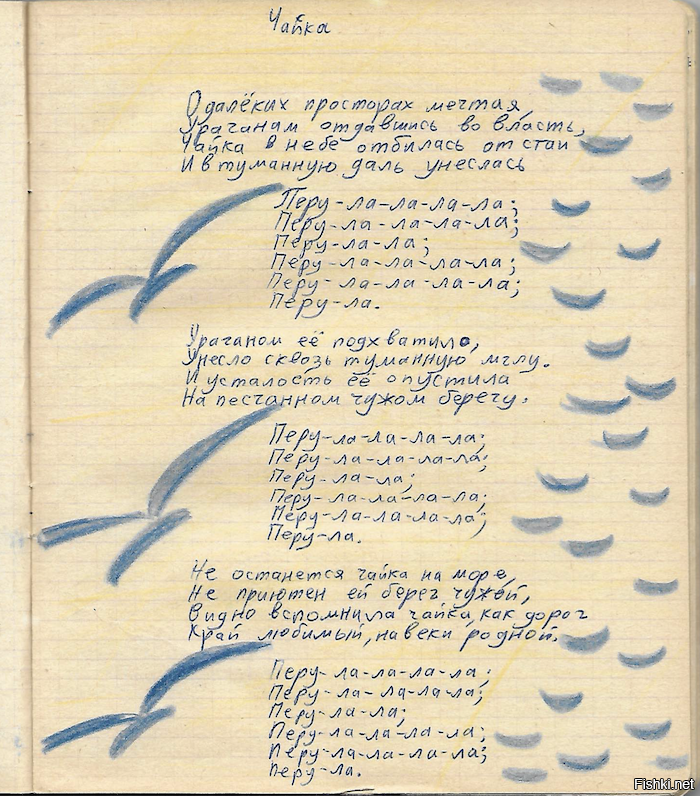 Чайка
О далёких просторах мечтая,
Урачанам отдавшись во власть,
Чайка в небе отбилась от стаи
И в туманную даль унеслась
Перу-ла-ла-ла-ла;
Перу-ла-ла-ла-ла;
Перу-ла-ла;
Перу-ла-ла-ла-ла;
Перу-ла-ла-ла-ла;
Перу-ла.
Урачаном её подхватило,
Унесло сквозь туманную мглу.
И усталость её опустила
На песчанном чужом беречу.
Перу-ла-ла-ла-ла;
Перу-ла-ла-ла-ла;
Перу-ла-ла;
Перу-ла-ла-ла-ла;
Перу-ла-ла-ла-ла;
Перу-ла.
Не останется чайка на море,
Не приютен ей берег чужой,
Видно вспомнила чайка, как дорог
Край любимый, навеки родной.
Перу-ла-ла-ла-ла;
Перу-ла-ла-ла-ла;
Перу-ла-ла;
Перу-ла-ла-ла-ла;
Перу-ла-ла-ла-ла;
Перу-ла.
Fishki.net